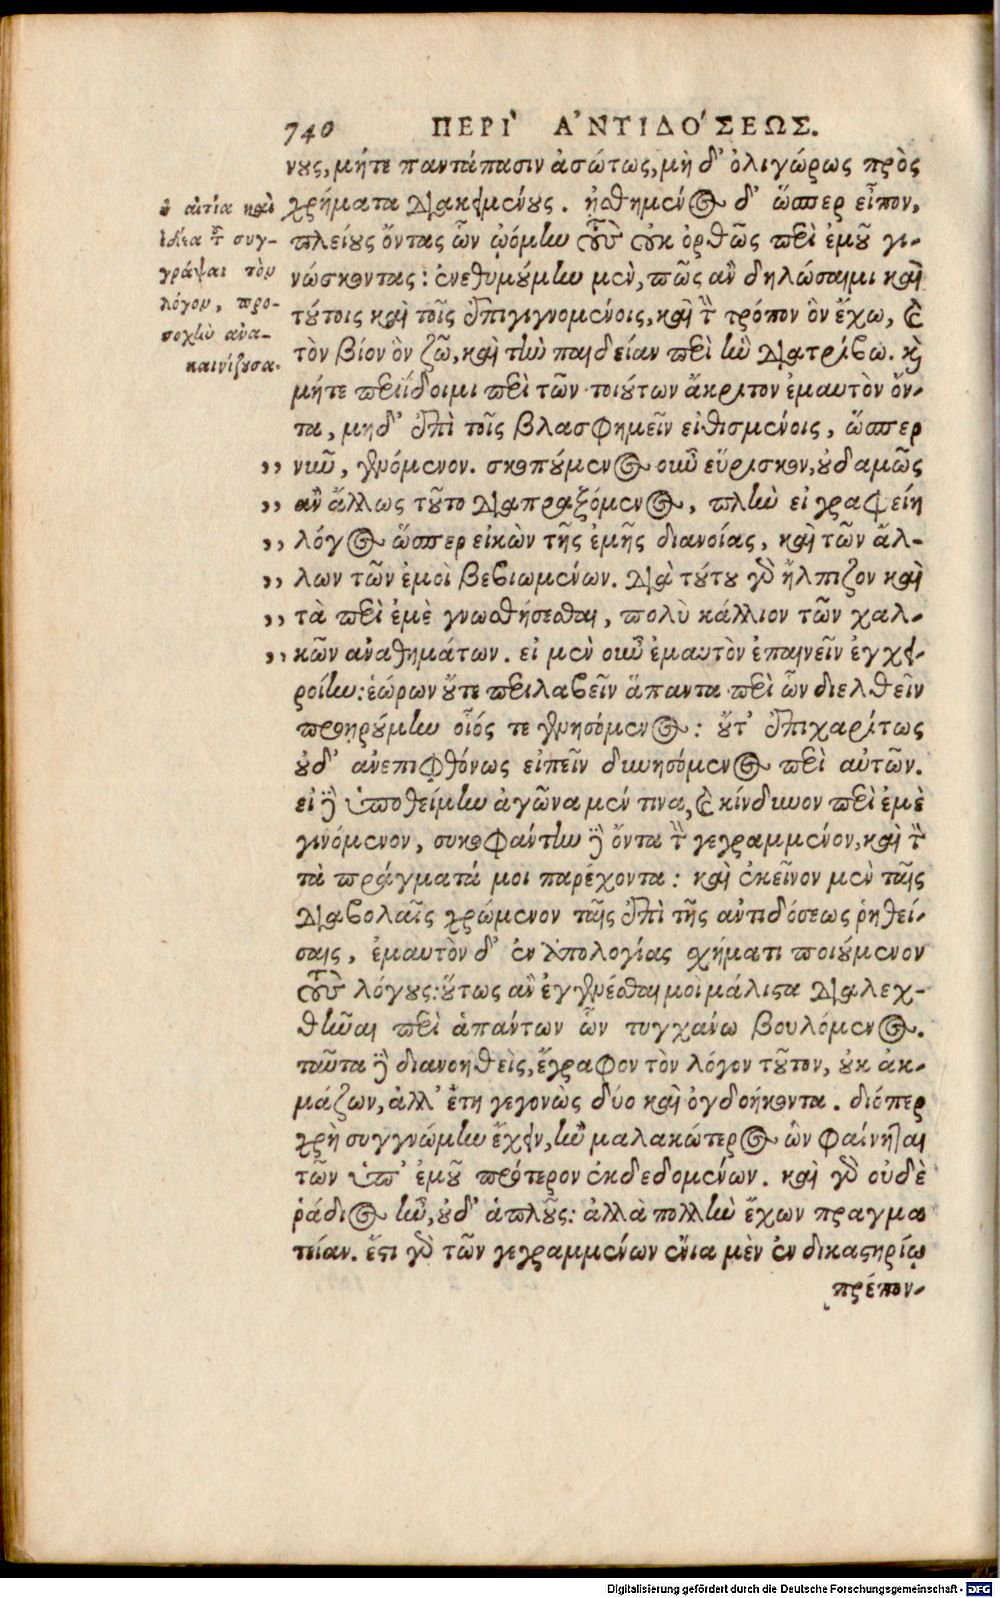 740 ΠΕΡῚ ἈΝΤΙΔΌΣΕΩΣ.
νους, μήτε παντάπασιν ἀσώτως, μὴ δ' ὀλιγώρως πρὸς
χρήματα διακειμένους. ᾐσθημένος δ' ὥσπερ εἶπον,
πλείους ὄντας ὧν ᾠόμην τοὺς οὐκ ὀρθῶς περὶ ἐμοῦ γι-
νώσκοντας: ἐνεθυμούμην μὲν, πῶς ἂν δηλώσαιμι καὶ
τούτοις καὶ τοῖς ἐπιγιγνομένοις, καὶ τὸν τρόπον ὃν ἔχω, καὶ
τὸν βίον ὃν ζῶ, καὶ τὴν παιδείαν περὶ ἣν διατρίβω. καὶ
μήτε περιίδοιμι περὶ τῶν τοιούτων ἄκριτον ἐμαυτὸν ὄν-
τα, μηδ' ἐπὶ τοῖς βλασφημεῖν εἰθισμένοις, ὥσπερ
,, νῦν, γενόμενον. σκοπούμενος οὖν εὕρισκον, οὐδαμῶς
,, ἂν ἄλλως τοῦτο διαπραξόμενος, πλὴν εἰ γραφείη
,, λόγος ὥσπερ εἰκὼν τῆς ἐμῆς διανοίας, καὶ τῶν ἄλ-
,, λων τῶν ἐμοὶ βεβιωμένων. διὰ τούτου γὰρ ἤλπιζον καὶ
,, τὰ περὶ ἐμὲ γνωσθήσεσθαι, πολὺ κάλλιον τῶν χαλ-
,, κῶν ἀναθημάτων. εἰ μὲν οὖν ἐμαυτὸν ἐπαινεῖν ἐγχει-
ροίην: ἑώρων οὔτε περιλαβεῖν ἅπαντα περὶ ὧν διελθεῖν
προῃρούμην οἷός τε γενησόμενος: οὔτ' ἐπιχαρίτως
οὐδ' ἀνεπιφθόνως εἰπεῖν δυνησόμενος περὶ αὐτῶν.
εἰ δὲ ὑποθείμην ἀγῶνα μέν τινα, καὶ κίνδυνον περὶ ἐμὲ
γινόμενον, συκοφάντην δὲ ὄντα τὸν γεγραμμένον, καὶ τὸν
τὰ πράγματά μοι παρέχοντα: καὶ ἐκεῖνον μὲν ταῖς
διαβολαῖς χρώμενον ταῖς ἐπὶ τῆς ἀντιδόσεως ῥηθεί-
σαις, ἐμαυτὸν δ' ἐν ἀπολογίας σχήματι ποιούμενον
τοὺς λόγους: οὕτως ἂν ἐγγενέσθαι μοὶ μάλιστα διαλεχ-
θῆναι περὶ ἁπάντων ὧν τυγχάνω βουλόμενος.
ταῦτα δὲ διανοηθεὶς, ἔγραφον τὸν λόγον τοῦτον, οὐκ ἀκ-
μάζων, ἀλλ' ἔτη γεγονὼς δύο καὶ ὀγδοήκοντα. διόπερ
χρὴ συγγνώμην ἔχειν, ἢν μαλακώτερος ὢν φαίνηται
τῶν ὑπ' ἐμοῦ πρότερον ἐκδεδομένων. καὶ γὰρ οὐδὲ
ῥάδιος ἦν, οὐδ' ἁπλοῦς: ἀλλὰ πολλὴν ἔχων πραγμα
τείαν. ἔστι γὰρ τῶν γεγραμμένων ἔνια μὲν ἐν δικαστηρίῳ
πρέπον-
ἡ αἰτία καὶ
ἰδέα τοῦ συγ-
γράψαι τὸν
λόγον, προ-
σοχὴν ἀνα-
καινίζουσα.
Digitalisierung gefördert durch die Deutsche Forschungsgemeinschaft - DFG